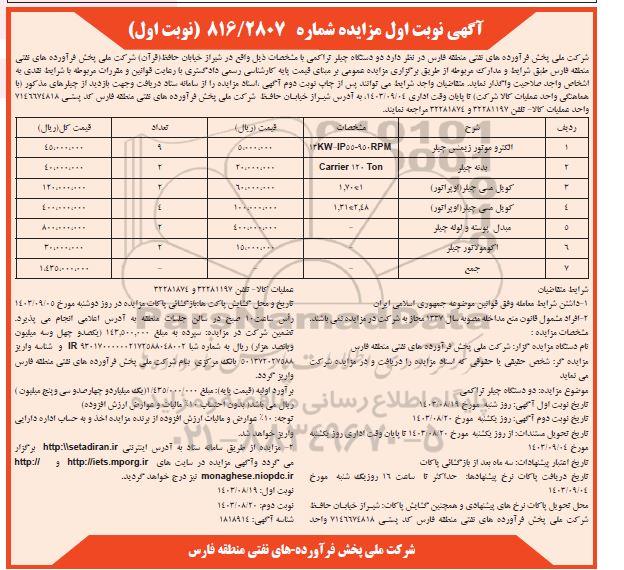 آگهی نوبت اول مزایده شماره ۸۱۶/۲۸۰۷ (نوبت اول)
شرکت ملی پخش فرآورده های نفتی منطقه فارس در نظر دارد دو دستگاه چیلر تراکمی با مشخصات ذیل واقع در شیراز خیابان حافظ(قرآن) شرکت ملی پخش فرآورده های نفتی
منطقه فارس طبق شرایط و مدارک مربوطه از طریق برگزاری مزایده عمومی بر مبنای قیمت پایه کارشناسی رسمی دادگستری با رعایت قوانین و مقررات مربوطه با شرایط نقدی به
اشخاص واجد صلاحیت واگذار نماید. متقاضیان واجد شرایط می توانند پس از چاپ نوبت دوم آگهی ،اسناد مزایده را از سامانه ستاد دریافت وجهت بازدید از چیلرهای مذکور (با
هماهنگی واحد عملیات کالا شرکت) تا پایان وقت اداری ۱۴۰۳/۰۹/۰۴، به آدرس شیراز خیابان حافظ شرکت ملی پخش فرآورده های نفتی منطقه فارس کد پستی ۷۱۴۶۶۷۴۸۱۸
واحد عملیات کالا- تلفن ۳۲۲۸۱۱۹۷ و ۳۲۲۸۱۸۷۴ مراجعه نمایند.
ردیف شرح مشخصات قیمت (ریال) تعداد قیمت کل(ریال)
۱ الکترو موتور زیمنس چیلر ۱۳KW-IP۵۵-۹۵۰RPM ۵.۰۰۰.۰۰۰ ۹ ۴۵.۰۰۰.۰۰۰
۲ بدنه چیلر Carrier ۱۲۰ Ton ۲۰.۰۰۰.۰۰۰ ۲ ۴۰.۰۰۰.۰۰۰
۳ کویل مسی چیلر(اوپراتور) ۱,۷۰×۱ ۶۰.۰۰۰.۰۰۰ ۲ ۱۲۰.۰۰۰.۰۰۰
۴ کویل مسی چیلر(اوپراتور) ۱,۳۱×۲,۴۸ ۱۰۰.۰۰۰.۰۰۰ ۴ ۴۰۰.۰۰۰.۰۰۰
۵ مبدل پوسته و لوله چیلر - ۴۰۰.۰۰۰.۰۰۰ ۲ ۸۰۰.۰۰۰.۰۰۰
۶ اکومولاتور چیلر - ۱۵.۰۰۰.۰۰۰ ۲ ۳۰.۰۰۰.۰۰۰
۷ جمع - - - ۱.۴۳۵.۰۰۰.۰۰۰
شرایط متقاضیان
۱-داشتن شرایط معامله وفق قوانین موضوعه جمهوری اسلامی ایران
۲-افراد مشمول قانون منع مداخله مصوبه سال ۱۳۳۷ مجاز به شرکت در مزایده نمی باشند.
مشخصات مزایده :
نام دستگاه مزایده گزار: شرکت ملی پخش فرآورده های نفتی منطقه فارس
مزایده گر: شخص حقیقی یا حقوقی که اسناد مزایده را دریافت و در مزایده شرکت
می نماید
موضوع مزایده: دو دستگاه چیلر تراکمی
تاریخ نوبت اول آگهی: روز شنبه مورخ ۱۴۰۳/۰۸/۱۹
تاریخ نوبت دوم آگهی: روز یکشنبه مورخ ۱۴۰۳/۰۸/۲۰
تاریخ تحویل مستندات: از روز یکشنبه مورخ ۱۴۰۳/۰۸/۲۰ تا پایان وقت اداری روز یکشنبه
مورخ ۱۴۰۳/۰۹/۰۴
تاریخ اعتبار پیشنهادات: سه ماه بعد از بازگشائی پاکات
تاریخ دریافت پاکات نرخ پیشنهادها: حداکثر تا ساعت ۱۶ روزیگک شنبه مورخ
۱۴۰۳/۰۹/۰۴
محل تحویل پاکات نرخ های پیشنهادی و همچنین گشایش پاکات: شیراز خیابان حافظ
شرکت ملی پخش فرآورده های نفتی منطقه فارس کد پستی ۷۱۴۶۶۷۴۸۱۸ واحد
عملیات کالا- تلفن ۳۲۲۸۱۱۹۷ و ۳۲۲۸۱۸۷۴
تاریخ و محل گشایش پاکت ها:بازگشائی پاکات مزایده در روز دوشنبه مورخ ۱۴۰۳/۰۹/۰۵
راس ساعت۱۰ صبح در سالن جلسات منطقه به آدرس اعلامی انجام می پذیرد.
تضمین شرکت در مزایده: سپرده به مبلغ ۱۴۳,۵۰۰,۰۰۰ (یکصدو چهل وسه میلیون
وپانصد هزار) ریال به شماره شبا IR ۹۳۰۱۷۰۰۰۰۰۰۰۲۱۷۲۵۸۸۰۴۸۰۰۲ و شناسه واریز
۵۰۱۳۷۲۰۲۷۵۸۸ بانک مرکزی بنام شرکت ملی پخش فرآورده های نفتی منطقه فارس
واریز گردد.
برآورد اولیه (قیمت پایه): مبلغ ۱/۴۳۵/۰۰۰/۰۰۰(یک میلیاردو چهارصدو سی و پنج میلیون)
ریال می باشد(بدون احتساب ۱۰٪ مالیات و عوارض ارزش افزوده)
توجه: ۱۰٪ عوارض و مالیات ارزش افزوده از برنده مزایده اخذ و به حساب اداره دارایی
واریز خواهد شد.
۲- مزایده از طریق سامانه ستاد به آدرس اینترنتی http:\\setadiran.ir برگزار
می گردد وآگهی مزایده در سایت های http://iets.mporg.ir و http://
monaghese.niopdc.ir نیز درج خواهد گردید.
نوبت اول: ۱۴۰۳/۰۸/۱۹
نوبت دوم: ۱۴۰۳/۰۸/۲۰
شناسه آگهی: ۱۸۱۸۹۱۴
پایگاه اطلاع رسانی مناقصه و مزایده
۰۲۱-۸۸۳۴۹۶۷۰-۵
شرکت ملی پخش فرآورده-های نفتی منطقه فارس